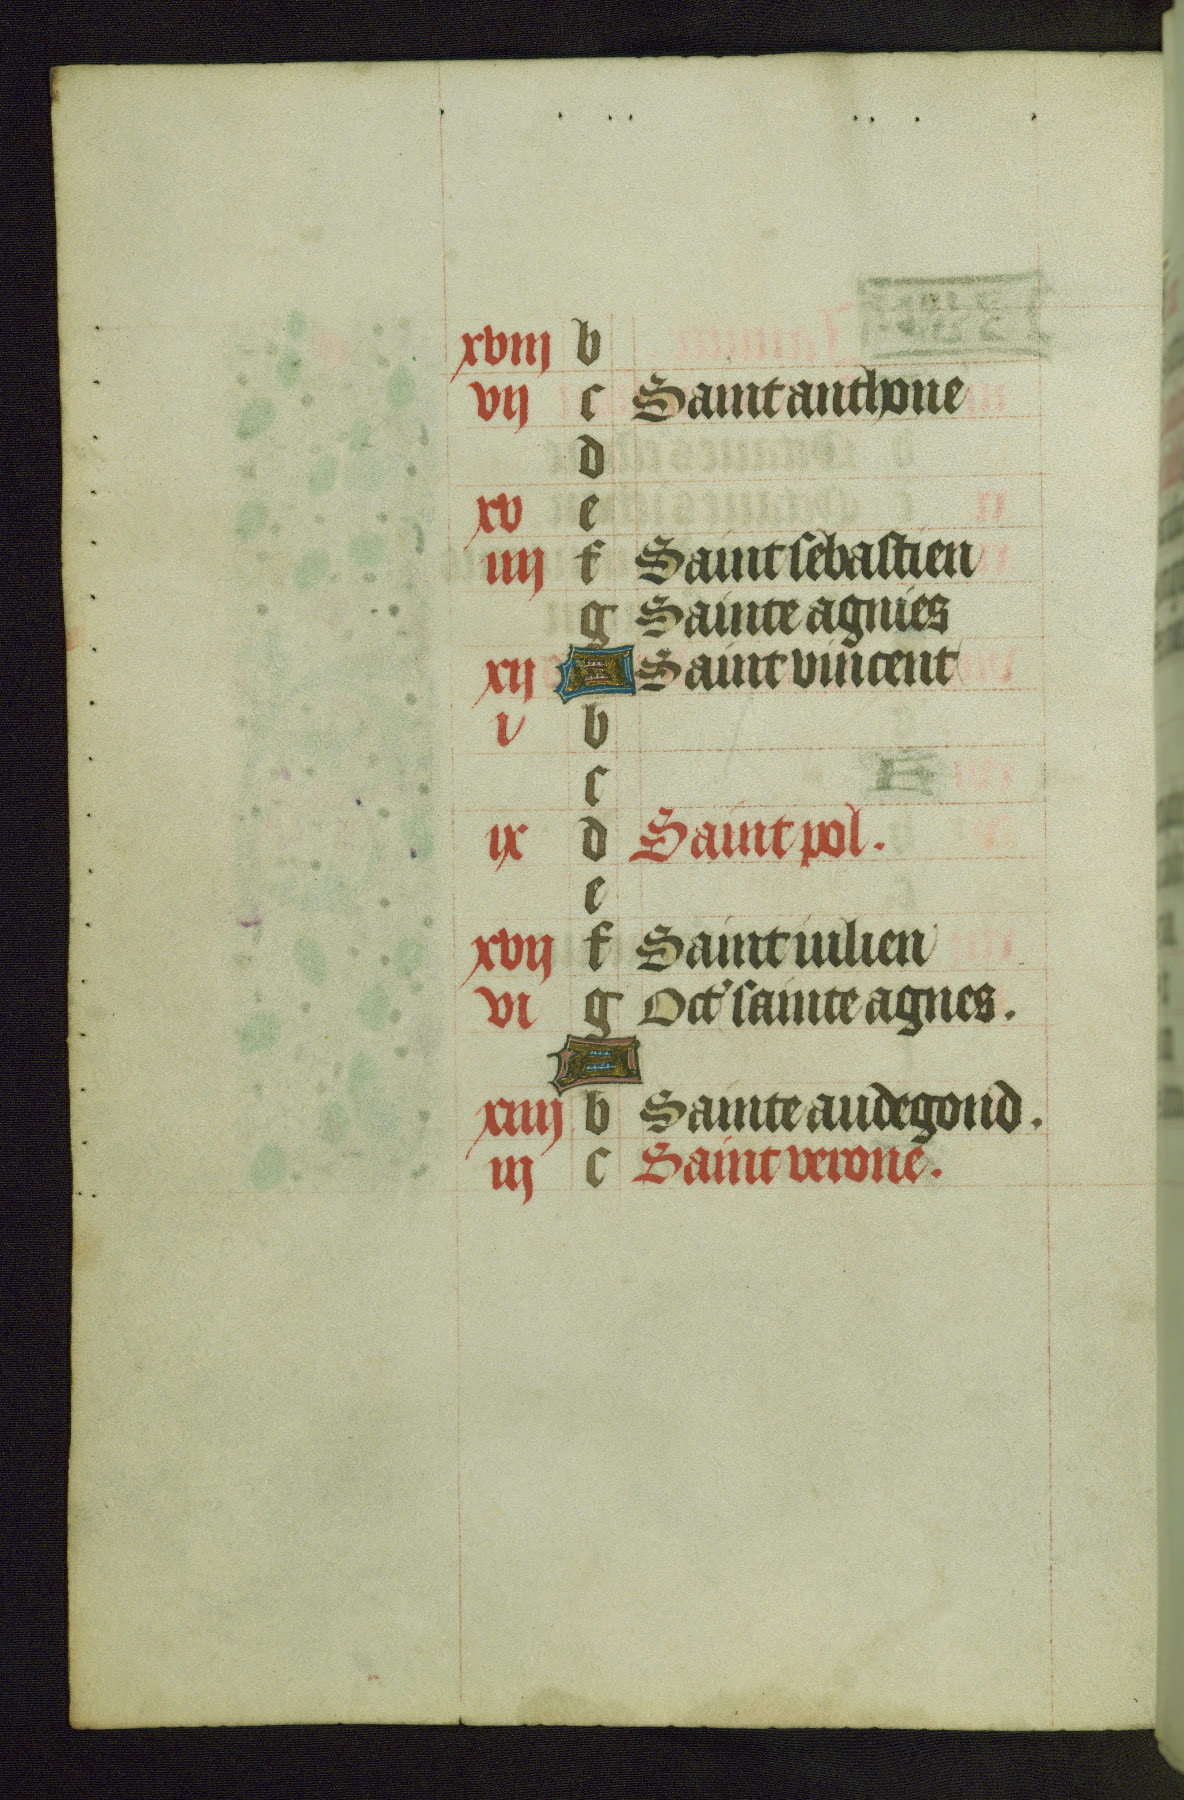 xviij b
vij c Saint anthone
d
xv e
iiij f Saint sebastien
g Sainte agnies
xij A Saint vincent
v b
c
ix d Saint pol.
e
xvij f Saint iulien
vi g Oct' sainte agnes.
A
xiiij b Sainte audegond.
iij c Saint verone.